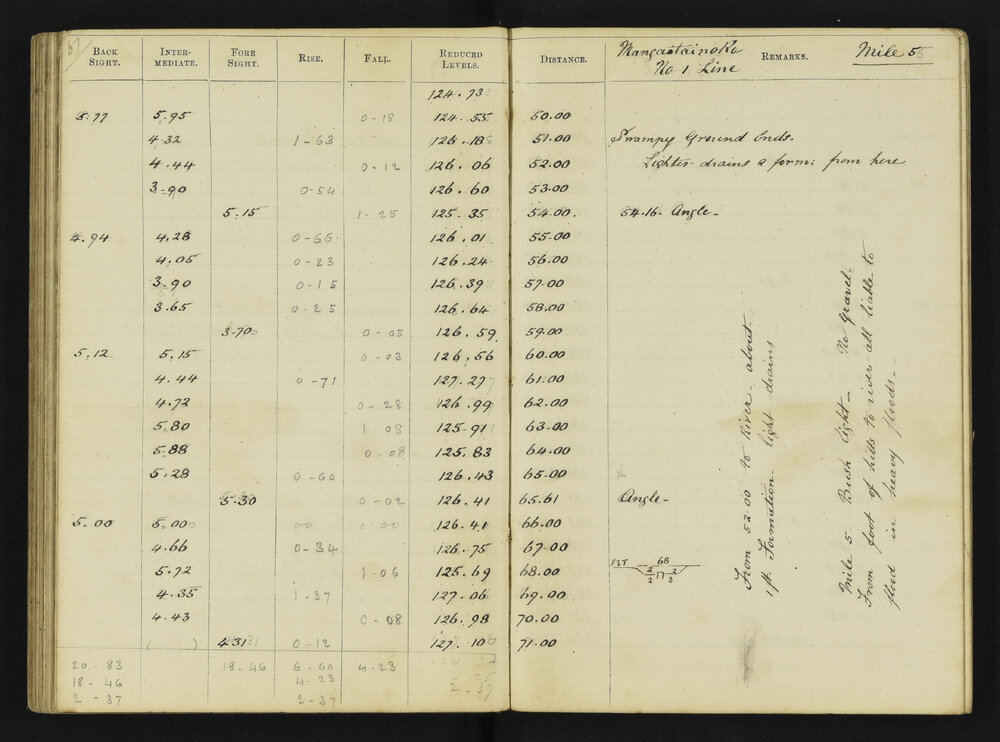 BACK SIGHT. INTER-MEDIATE. FORE SIGHT. RISE. FALL. REDUCED LEVELS. DISTANCE. Mangaotainoka No 1 Line REMARKS. Mile 5
124.73
5.95 0-18 124.55 50.00
4.32 1-63 126.18 51.00 Swampy Ground Ends-
4.44 0-12 126.06 52.00 Lighter drains & form: from here
3.90 0-54 126.60 53.00
5.15 1-25 125.35 54.00. 54.16 Angle-
4.94 4.28 0-66 126.01 55.00
4.05 0-23 126.24 56.00
3.90 0-15 126.39 57.00
3.65 0-25 126.64 58.00
3.70 0-05 126.59 59.00
5.12 5.15 0-03 126.56 60.00
4.44 0-71 127.27 61.00
4.72 0-28 126.99 62.00
5.80 1-08 125.91 63.00
5.88 0-08 125.83 64.00
5.28 0-60 126.43 65.00
5.30 0-02 126.41 65.61 Angle-
5.00 5.00 00 0.00 126.41 66.00
4.66 0-34 126.75 67.00
5.72 1-06 125.69 68.00
4.35 1-37 127.06 69.00
4.43 0-08 126.98 70.00
( ) 4.31 0-12 127.10 71.00
20-83 18-46 6-60 4-23
18-46 4-23
2-37 2-37 2-37
68
2 2
2 3
From 52.00 to River- about
1ft Formation- light drains
Mile 5 Bush light- No Gravel-
From foot of hills to river all liable to
flood in heavy floods-